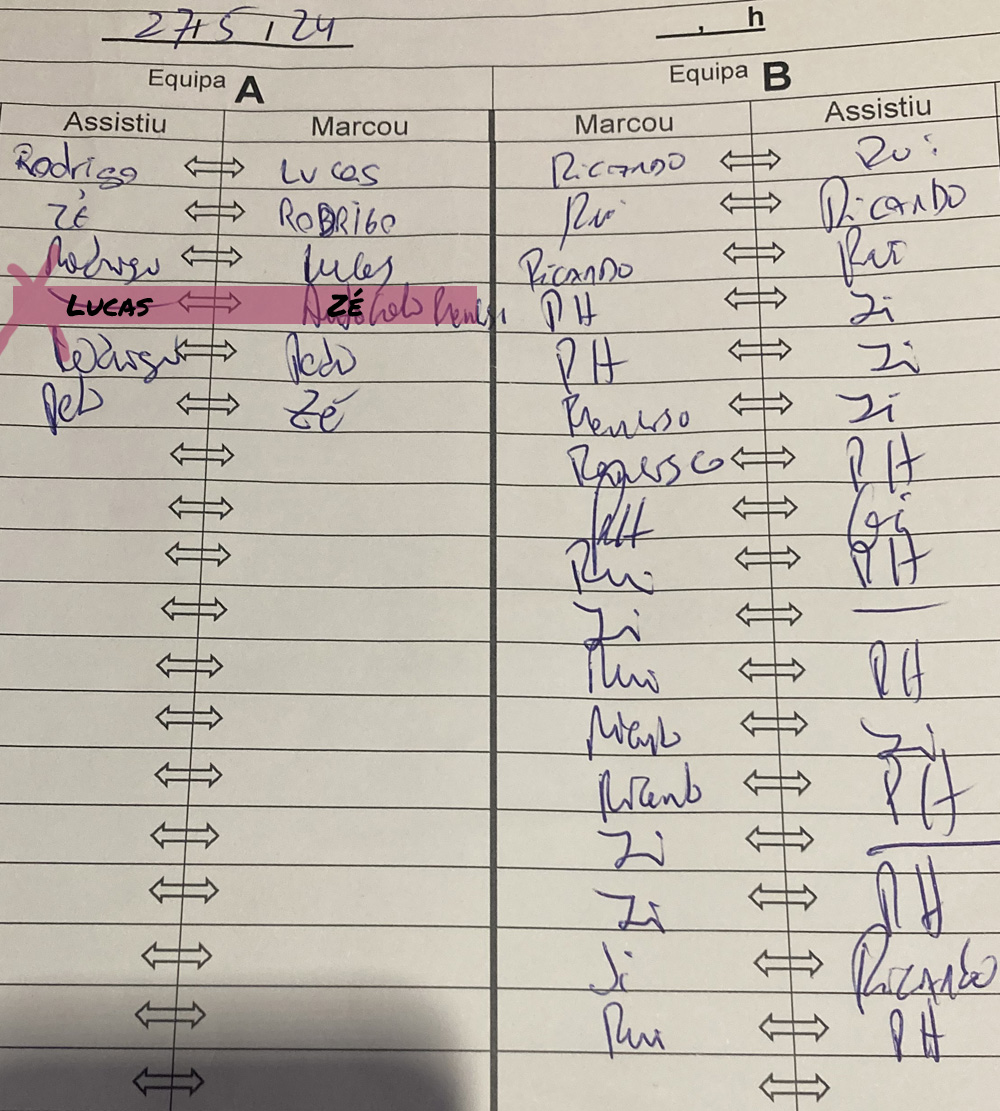 27/5/24 , h
Equipa A Equipa B
Assistiu Marcou Marcou Assistiu
Rodrigo Lucas Ricardo Rui
Zé Rodrigo Rui Ricardo
Rodrigo Lucas Ricardo Rui
LUCAS ZÉ PH Zi
Rodrigo Pedro PH Zi
Pedro Zé Zi
PH
PH
Rui PH
Zi —
Rui PH
Ricardo Zi
Ricardo PH
Zi —
Zi PH
Zi Ricardo
Rui PH